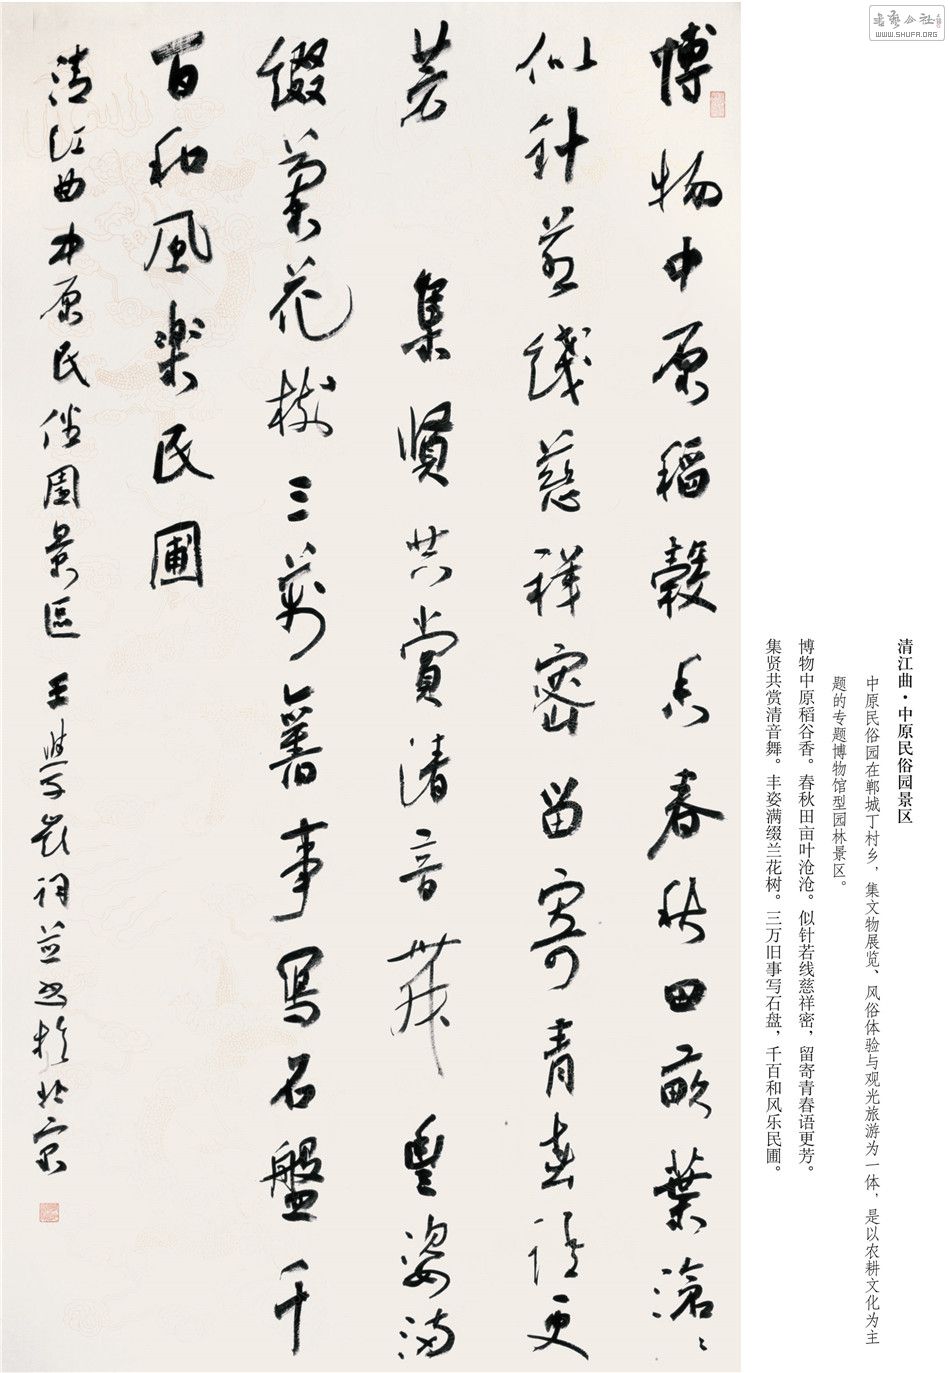 博物中原稻穀香春秋田畝葉滄〻
似针若綫慈祥密留寄青春語更
芳 集賢共賞清音舞豐姿满
缀蘭花树三萬舊事寫石盤千
百和風樂民圃
清江曲中原民俗園景區 王學岭词並书於北京
清江曲·中原民俗园景区
中原民俗园在郸城丁村乡，集文物展览、风俗体验与观光旅游为一体，是以农耕文化为主
题的专题博物馆型园林景区。
博物中原稻谷香。春秋田亩叶沧沧。似针若线慈祥密，留寄青春语更芳。
集贤共赏清音舞。丰姿满缀兰花树。三万旧事写石盘，千百和风乐民圃。
书艺公社
www.SHUFA.ORG